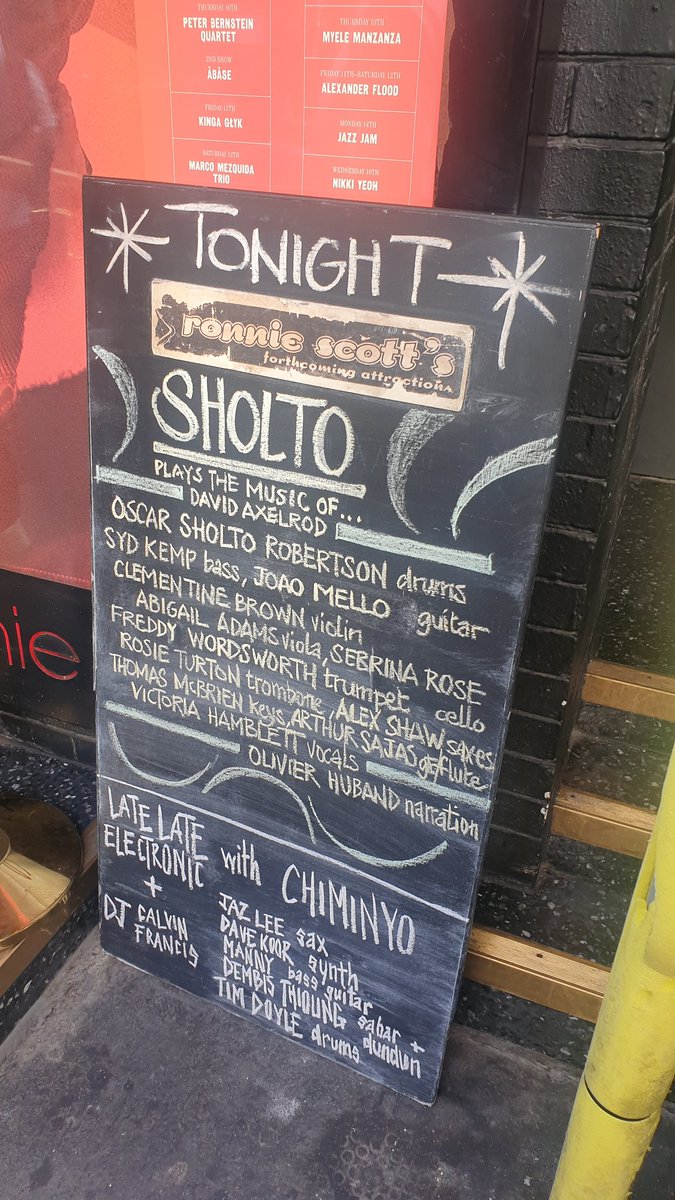 THURSDAY 10TH
PETER BERNSTEIN
QUARTET
2ND SHOW
ÀBÁSE
FRIDAY 11TH
KINGA GŁYK
SATURDAY 12TH
MARCO MEZQUIDA
TRIO
THURSDAY 10TH
MYELE MANZANZA
FRIDAY 11TH–SATURDAY 12TH
ALEXANDER FLOOD
MONDAY 14TH
JAZZ JAM
WEDNESDAY 16TH
NIKKI YEOH
nie
TONIGHT
ronnie scott's
forthcoming attractions
SHOLTO
PLAYS THE MUSIC OF...
DAVID AXELROD
OSCAR SHOLTO ROBERTSON drums
SYD KEMP bass, JOAO MELLO guitar
CLEMENTINE BROWN violin
ABIGAIL ADAMS viola, SEBRINA ROSE cello
FREDDY WORDSWORTH trumpet
ROSIE TURTON trombone, ALEX SHAW saxes
THOMAS McBRIEN keys, ARTHUR SAJAS flute
VICTORIA HAMBLETT vocals
OLIVIER HUBAND narration
LATE LATE
ELECTRONIC with CHIMINYO
+
DJ CALVIN
FRANCIS
JAZ LEE sax
DAVE KOOR synth
MANNY bass guitar
DEMBIS THIOUNG sabar +
dundun
TIM DOYLE drums